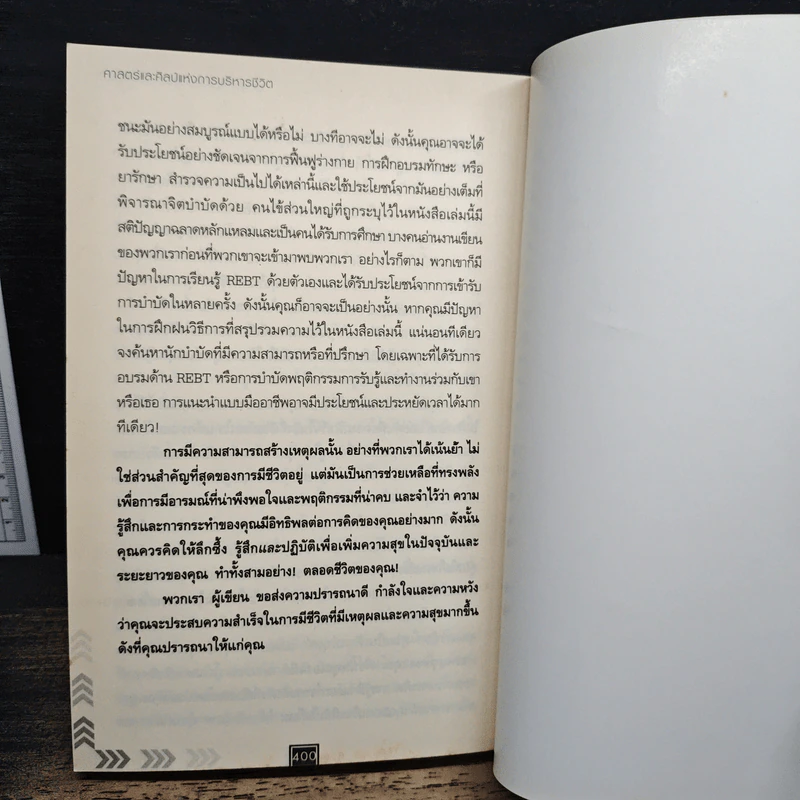 ศาสตร์และศิลป์แห่งการบริหารชีวิต
ชนะมันอย่างสมบูรณ์แบบได้หรือไม่ บางทีอาจจะไม่ ดังนั้นคุณอาจจะได้
รับประโยชน์อย่างชัดเจนจากการฟื้นฟูร่างกาย การฝึกอบรมทักษะ หรือ
ยารักษา สำรวจความเป็นไปได้เหล่านี้และใช้ประโยชน์จากมันอย่างเต็มที่
พิจารณาจิตบำบัดด้วย คนไข้ส่วนใหญ่ที่ถูกระบุไว้ในหนังสือเล่มนี้มี
สติปัญญาฉลาดหลักแหลมและเป็นคนได้รับการศึกษา บางคนอ่านงานเขียน
ของพวกเราก่อนที่พวกเขาจะเข้ามาพบพวกเรา อย่างไรก็ตาม พวกเขาก็มี
ปัญหาในการเรียนรู้ REBT ด้วยตัวเองและได้รับประโยชน์จากการเข้ารับ
การบำบัดในหลายครั้ง ดังนั้นคุณก็อาจจะเป็นอย่างนั้น หากคุณมีปัญหา
ในการฝึกฝนวิธีการที่สรุปรวมความไว้ในหนังสือเล่มนี้ แน่นอนทีเดียว
จงค้นหานักบำบัดที่มีความสามารถหรือที่ปรึกษา โดยเฉพาะที่ได้รับการ
อบรมด้าน REBT หรือการบำบัดพฤติกรรมการรับรู้และทำงานร่วมกับเขา
หรือเธอ การแนะนำแบบมืออาชีพอาจมีประโยชน์และประหยัดเวลาได้มาก
ทีเดียว!
การมีความสามารถสร้างเหตุผลนั้น อย่างที่พวกเราได้เน้นย้ำ ไม่
ใช่ส่วนสำคัญที่สุดของการมีชีวิตอยู่ แต่มันเป็นการช่วยเหลือที่ทรงพลัง
เพื่อการมีอารมณ์ที่น่าพึงพอใจและพฤติกรรมที่น่าคบ และจำไว้ว่า ความ
รู้สึกและการกระทำของคุณมีอิทธิพลต่อการคิดของคุณอย่างมาก ดังนั้น
คุณควรคิดให้ลึกซึ้ง รู้สึกและปฏิบัติเพื่อเพิ่มความสุขในปัจจุบันและ
ระยะยาวของคุณ ทำทั้งสามอย่าง! ตลอดชีวิตของคุณ!
พวกเรา ผู้เขียน ขอส่งความปรารถนาดี กำลังใจและความหวัง
ว่าคุณจะประสบความสำเร็จในการมีชีวิตที่มีเหตุผลและความสุขมากขึ้น
ดังที่คุณปรารถนาให้แก่คุณ
400